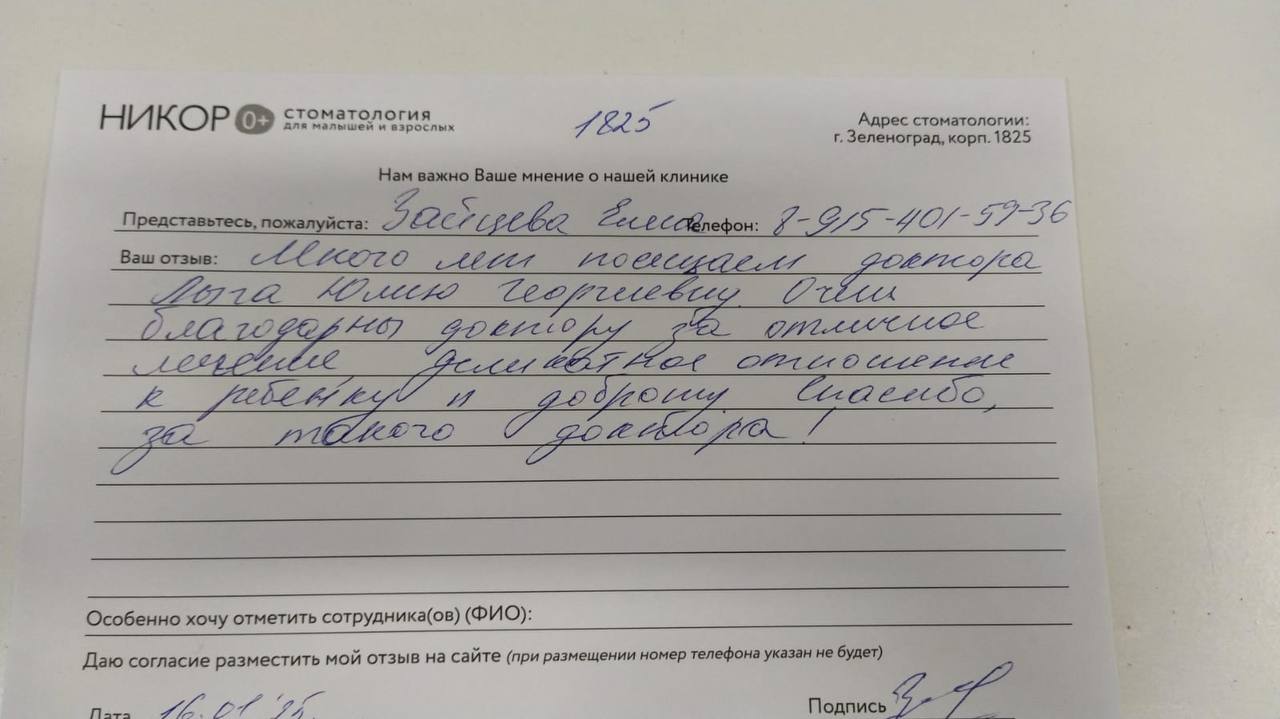 НИКОР 0+ стоматология
для малышей и взрослых
1825
Адрес стоматологии:
г. Зеленоград, корп. 1825
Нам важно Ваше мнение о нашей клинике
Представьтесь, пожалуйста: Зайцева Елена Телефон: 8-915-401-59-36
Ваш отзыв: Много лет посещаем доктора
Лыга Юлию Георгиевну. Очень
благодарны доктору за отличное
лечение, деликатное отношение
к ребенку и доброту. Спасибо,
за такого доктора!
Особенно хочу отметить сотрудника(ов) (ФИО):
Даю согласие разместить мой отзыв на сайте (при размещении номер телефона указан не будет)
Дата 16.01.25. Подпись